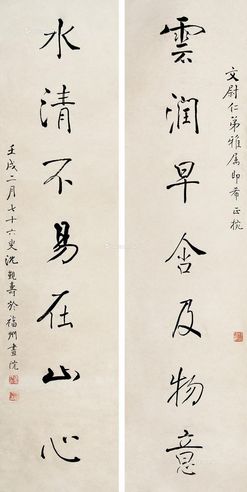 文尉仁弟雅属即希正捥
雲润早含及物意
水清不易在山心
壬戌二月七十六叟沈觐壽於福州畫院